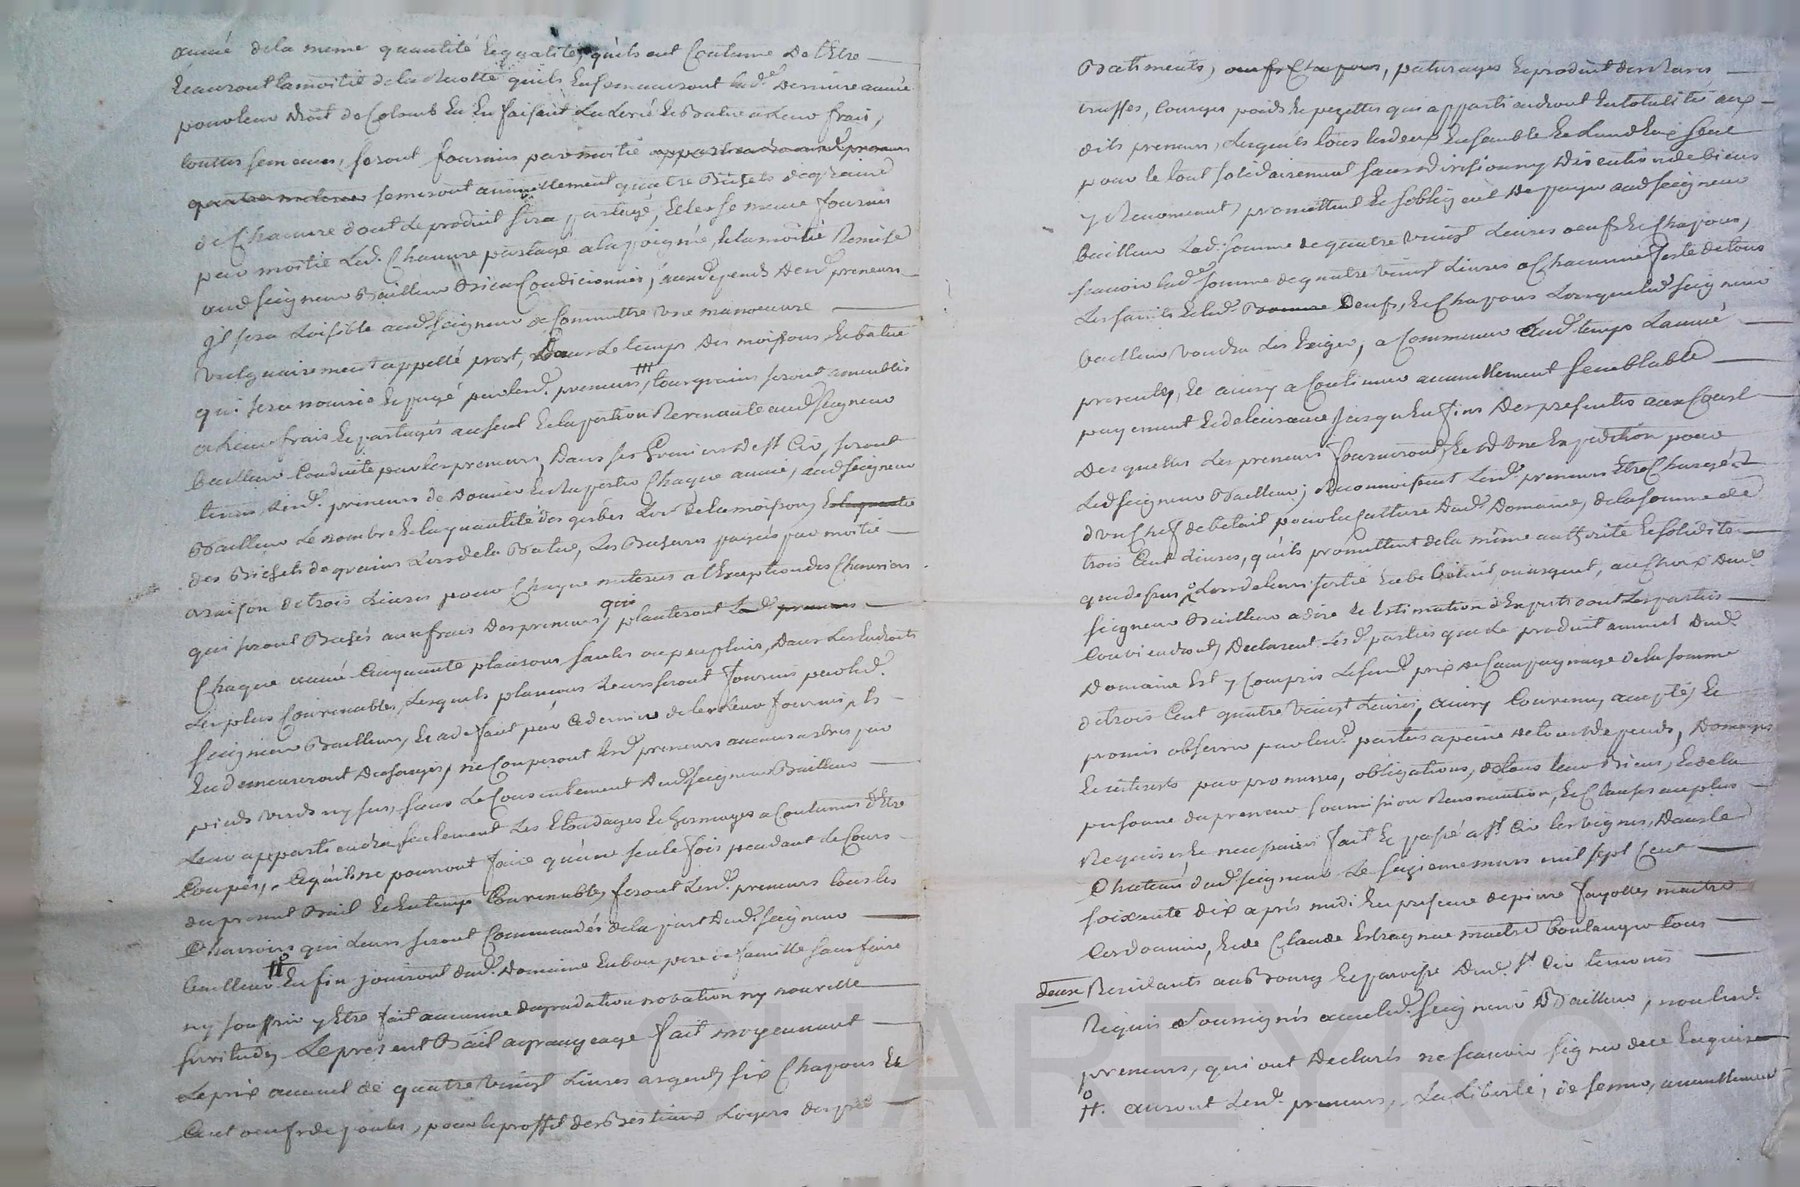 année de la meme quantité et qualité, qu'ils ont Coutume de l'Etre
et auront la moitié de la Recolte qu'ils Ensemenceront lad.e Derniere année
pour leur Droit de Colons En En faisant La Levé et Batue a Leur frais,
touttes semences, seront fournies par moitié appartiendra auxd. preneurs
quatre metures semeront annuellement quatre Bichets de graine
de Chanvre dont Le produit sera partagé, Et la semence fournie
par moitié Lad. Chanvre partagé a la poignée, et la moitié Remise
aud Seigneur Bailleur Bien Condicionnée, aux depends Desd. preneurs
il sera Loisible aud. Seigneur de Commettre une manoeuvre
vulgairement appellé prost, Dans Le temps Des moissons et batue
qui sera nourrie Et payé par lesd. preneurs, tous grains seront amenblés
a leur frais Et partagés au seul Et la portion Revenante aud Seigneur
Bailleur Conduite par les preneurs, Dans ses Greniers de St Cir, seront
tenus, lesd. preneurs de Donner Chaque année, aud Seigneur
Bailleur Le nombre et la quantité des gerbes Lors de la moisson,
des Bichets de grains Lors de la Batue, Les Baseurs payés par moitié
a raison de trois Livres pour Chaque meteries a l'Exception des Chenevieres
qui seront Basés aux frais Des preneurs, qui planteront Lesd. preneurs
Chaque année Cinquante plansons saules ou peupliers, Dans Les Endroits
Les plus Convenables, Lesquels plansons Leurs seront fournis par led.
Seigneur Bailleur, Et a defaut par Ce dernier de les leur fournir, ils
En demeureront Dechargés, ne Couperont Lesd. preneurs aucuns arbres par
pieds verds ny secs, sans Le Consentement Dud. Seigneur Bailleur
Leur appartiendra seulement Les Elondages Et Ecermages a Coutumés d'Etre
Coupés, - Ce qu'ils ne pourront faire qu'une seule fois pendant le Cours
du present Bail Et En temps Convenables, feront Lesd. preneurs tous les
Charrois qui Leurs seront Commandés de la part Dud. Seigneur
Bailleur # Enfin jouiront dud. Domaine En bon pere de famille sans faire
ny souffrir y Etre fait aucunne degradation novation ny nouvelle
servitude, Le present Bail a grangeage fait moyennant
Le prix annuel de quatre vingt Livres argent, six Chapons Et
Cent oeufs de poules, pour le proffit des Bestiaux Loyers des prés
Batiments, oeufs Chapons, paturages Et produit des Raves
truffes, Courges poids Et pezettes qui appartiendront En totalité aux
dits preneurs, Lesquels tous les deux Ensemble Et L'un d'Eux seul
pour le tout solidairement sans division ny Discution de biens
y Renoncant, promettent Et s'obligent De payer aud Seigneur
Bailleur Lad. somme de quatre vingt Livres oeufs Et Chapons,
scavoir lad.e somme de quatre vingt Livres a Chacunne feste de tous
Les saints Et Led. Domaine Oeufs, Et Chapons Lorsque led Seigneur
Bailleur voudra Les Exiger, a Commencer aud. temps L'année
presente, Et ainsy a Continuer annuellement semblable
payement Et delivrance jusqu'En fins Des presentes aux Cours
Desquelles Les preneurs fourniront, Et d'une Expedition pour
Led Seigneur Bailleur; Reconnoissent Lesd. preneurs Etre Chargés
D'un Chef de betail pour la Culture Dud. Domaine, de la somme de
trois Cent Livres, qu'ils promettent de la même authorité Et solidité
que dessus Lors de leur sortie En betail, ou argent, au Choix Dud.
Seigneur Bailleur a dire Et Estimation d'Experts dont Les parties
Conviendront, Declarent Lesd. parties que Le produit annuel Dud.
Domaine Est y Compris Le susd. prix de Compagnage de la somme
de trois Cent quatre vingt Livres, ainsy Convenu accepté, Et
promis observer par lesd. parties a peine de tous depends, Dommages
Et interests par promesses, obligations, de tous leurs Biens, Et de la
personne du preneur soumission Renonciation, Et Clauses au plus
Requises Et necessaires fait Et passé a St Cir les vignes, Dans le
Chateau dud. Seigneur Le seizieme mars mil sept Cent
soixante dix après midi En presence de pierre Fayolles maitre
Cordonnier, Et de Claude Estragnat maitre boulanger tous
deux Residants au Bourg Et paroisse Dud. St Cir temoins
Requis Soussignés avec led. Seigneur Bailleur, non lesd.
preneurs, qui ont Declarés ne scavoir signer de ce Enquis
#. auront Lesd. preneurs, La Liberté, de semer, annuellement
CHAREYRON